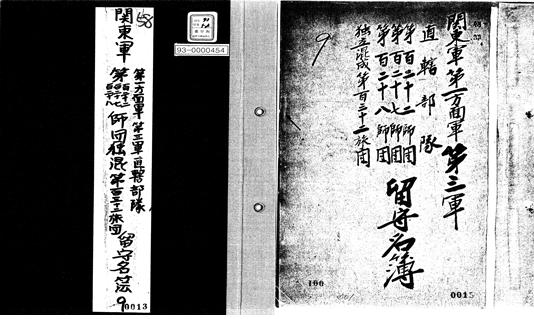 58
関東軍
第一方面軍第三軍直轄部隊
第百二十二
百二十七
百二十八
師団独混第百三十二旅団留守名簿
9
0013
93-0000454
関東軍第一方面軍第三軍
直轄部隊
第百二十二師団
第百二十七師団
第百二十八師団
独立混成第百三十二旅団
留守名簿
9
100
0015